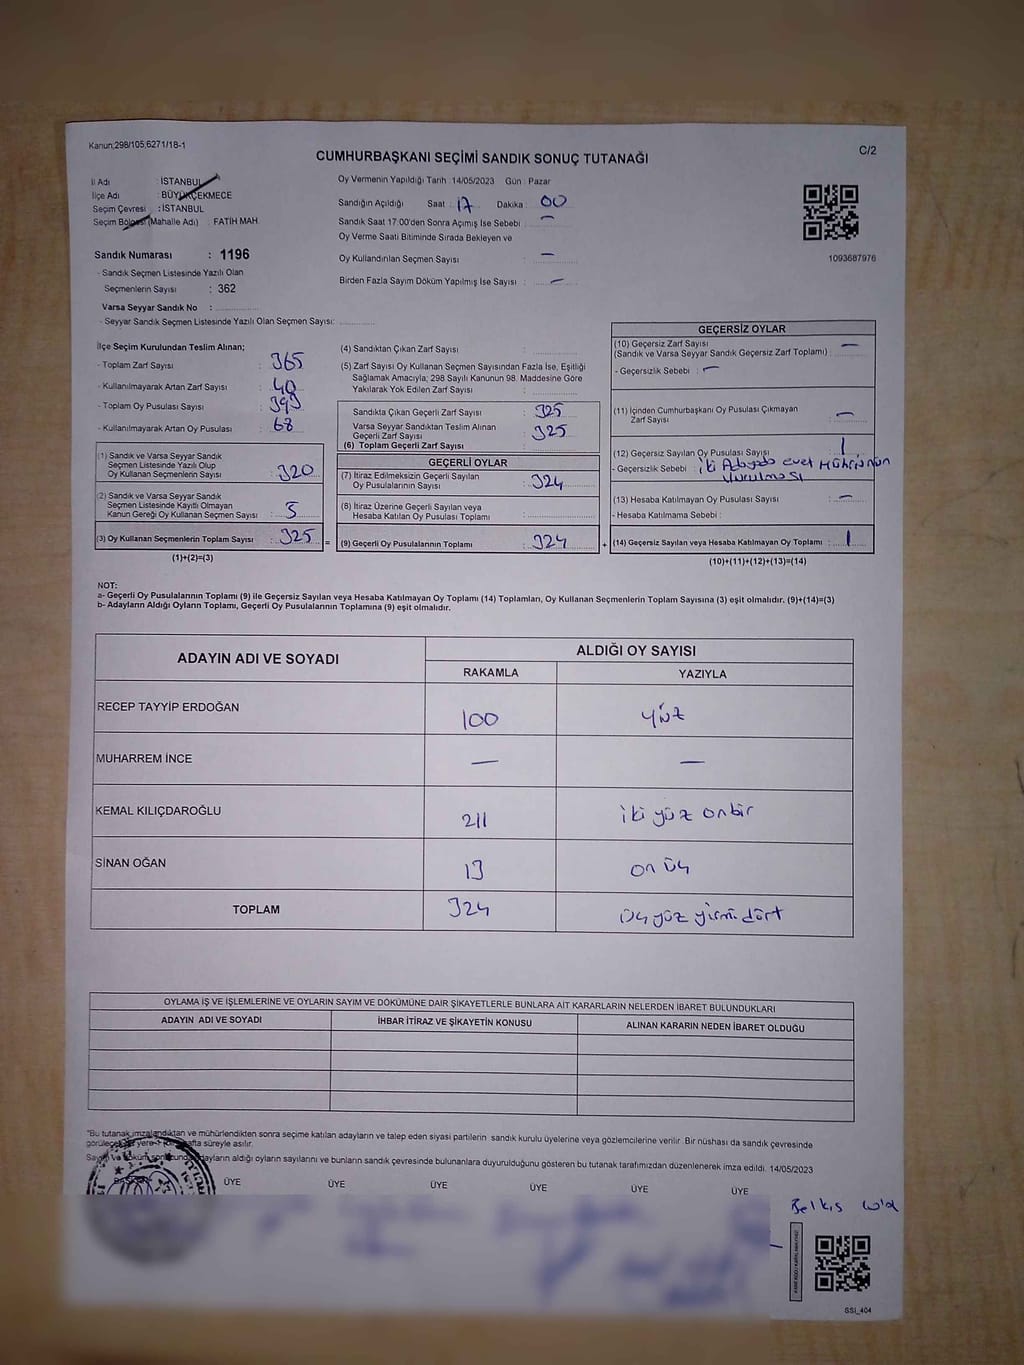 Kanun;298/105,6271/18-1
C/2
CUMHURBAŞKANI SEÇİMİ SANDIK SONUÇ TUTANAĞI
İl Adı : İSTANBUL
İlçe Adı : BÜYÜKÇEKMECE
Seçim Çevresi : İSTANBUL
Seçim Bölgesi (Mahalle Adı) : FATİH MAH.
Oy Vermenin Yapıldığı Tarih : 14/05/2023 Gün : Pazar
Sandığın Açıldığı Saat : 17 Dakika : 00
Sandık Saat 17:00'den Sonra Açımış İse Sebebi : —
Oy Verme Saati Bitiminde Sırada Bekleyen ve
Oy Kullandırılan Seçmen Sayısı : —
Birden Fazla Sayım Döküm Yapılmış İse Sayısı : —
1093687976
Sandık Numarası : 1196
- Sandık Seçmen Listesinde Yazılı Olan
Seçmenlerin Sayısı : 362
Varsa Seyyar Sandık No :
- Seyyar Sandık Seçmen Listesinde Yazılı Olan Seçmen Sayısı:
İlçe Seçim Kurulundan Teslim Alınan;
- Toplam Zarf Sayısı : 365
- Kullanılmayarak Artan Zarf Sayısı : 40
- Toplam Oy Pusulası Sayısı : 393
- Kullanılmayarak Artan Oy Pusulası : 68
(1) Sandık ve Varsa Seyyar Sandık
Seçmen Listesinde Yazılı Olup
Oy Kullanan Seçmenlerin Sayısı : 320
(2) Sandık ve Varsa Seyyar Sandık
Seçmen Listesinde Kayıtlı Olmayan
Kanun Gereği Oy Kullanan Seçmen Sayısı : 5
(3) Oy Kullanan Seçmenlerin Toplam Sayısı : 325
(1)+(2)=(3)
(4) Sandıktan Çıkan Zarf Sayısı :
(5) Zarf Sayısı Oy Kullanan Seçmen Sayısından Fazla İse, Eşitliği
Sağlamak Amacıyla; 298 Sayılı Kanunun 98. Maddesine Göre
Yakılarak Yok Edilen Zarf Sayısı :
Sandıkta Çıkan Geçerli Zarf Sayısı : 325
Varsa Seyyar Sandıktan Teslim Alınan
Geçerli Zarf Sayısı : 325
(6) Toplam Geçerli Zarf Sayısı
GEÇERLİ OYLAR
(7) İtiraz Edilmeksizin Geçerli Sayılan
Oy Pusulalarının Sayısı : 324
(8) İtiraz Üzerine Geçerli Sayılan veya
Hesaba Katılan Oy Pusulası Toplamı :
= (9) Geçerli Oy Pusulalarının Toplamı : 324
GEÇERSİZ OYLAR
(10) Geçersiz Zarf Sayısı
(Sandık ve Varsa Seyyar Sandık Geçersiz Zarf Toplamı) : —
- Geçersizlik Sebebi : —
(11) İçinden Cumhurbaşkanı Oy Pusulası Çıkmayan
Zarf Sayısı : —
(12) Geçersiz Sayılan Oy Pusulası Sayısı : 1
- Geçersizlik Sebebi : iki Adayada evet Mührünün
Vurulması
(13) Hesaba Katılmayan Oy Pusulası Sayısı : —
- Hesaba Katılmama Sebebi :
+ (14) Geçersiz Sayılan veya Hesaba Katılmayan Oy Toplamı : 1
(10)+(11)+(12)+(13)=(14)
NOT:
a- Geçerli Oy Pusulalarının Toplamı (9) ile Geçersiz Sayılan veya Hesaba Katılmayan Oy Toplamı (14) Toplamları, Oy Kullanan Seçmenlerin Toplam Sayısına (3) eşit olmalıdır. (9)+(14)=(3)
b- Adayların Aldığı Oyların Toplamı, Geçerli Oy Pusulalarının Toplamına (9) eşit olmalıdır.
ADAYIN ADI VE SOYADI
ALDIĞI OY SAYISI
RAKAMLA YAZIYLA
RECEP TAYYİP ERDOĞAN 100 yüz
MUHARREM İNCE — —
KEMAL KILIÇDAROĞLU 211 iki yüz onbir
SİNAN OĞAN 13 on üç
TOPLAM 324 üç yüz yirmi dört
OYLAMA İŞ VE İŞLEMLERİNE VE OYLARIN SAYIM VE DÖKÜMÜNE DAİR ŞİKAYETLERLE BUNLARA AİT KARARLARIN NELERDEN İBARET BULUNDUKLARI
ADAYIN ADI VE SOYADI İHBAR İTİRAZ VE ŞİKAYETİN KONUSU ALINAN KARARIN NEDEN İBARET OLDUĞU
"Bu tutanak imzalandıktan ve mühürlendikten sonra seçime katılan adayların ve talep eden siyasi partilerin sandık kurulu üyelerine veya gözlemcilerine verilir. Bir nüshası da sandık çevresinde
süreyle asılır.
adayların aldığı oyların sayılarını ve bunların sandık çevresinde bulunanlara duyurulduğunu gösteren bu tutanak tarafımızdan düzenlenerek imza edildi. 14/05/2023
ÜYE ÜYE ÜYE ÜYE ÜYE ÜYE
Belkıs
SSI_404